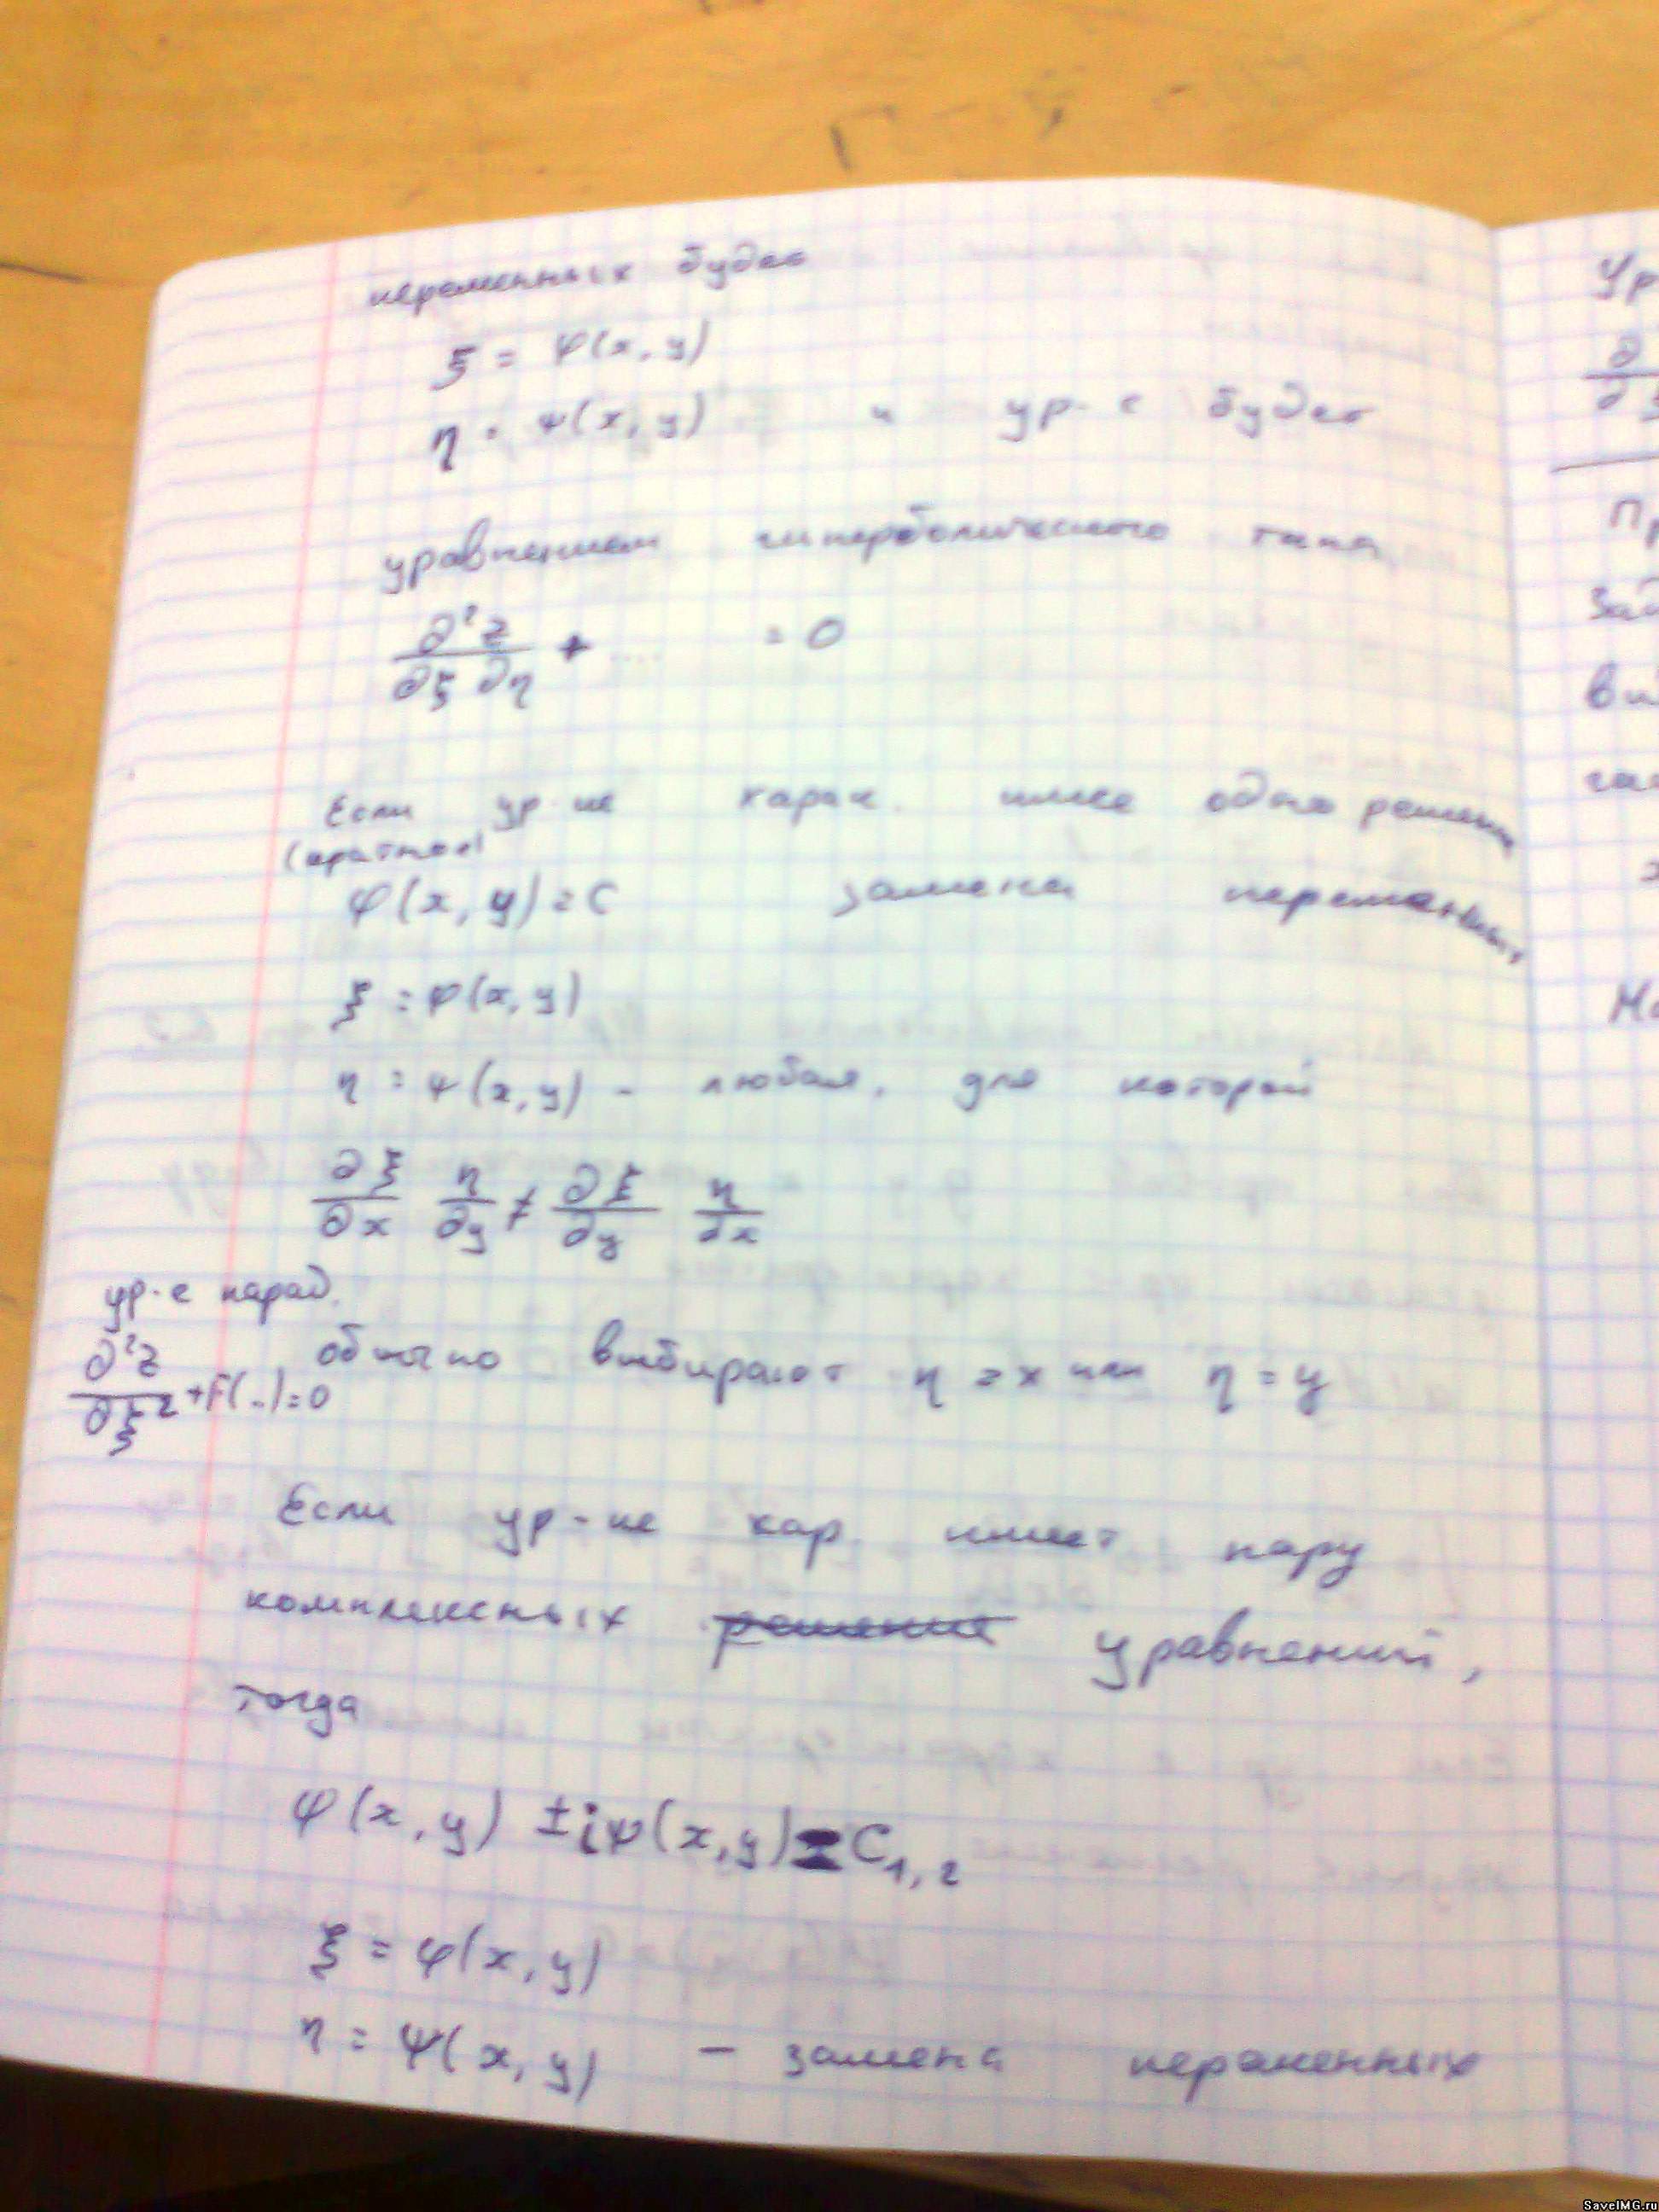 переменных будет
ξ = φ(x, y)
η = ψ(x, y) и ур-е будет
уравнением гиперболического типа
∂²z / ∂ξ ∂η + .... = 0
Если ур-ие харак. имее одно решение
(кратное)
φ(x, y) = C замена переменных,
ξ = φ(x, y)
η = ψ(x, y) – любая, для которой
∂ξ/∂x η/∂y ≠ ∂ξ/∂y η/∂x
ур-е параб.
∂²z/∂ξ² + F(..) = 0
обычно выбирают η = x или η = y
Если ур-ие хар. имеет пару
комплексных решения уравнений,
тогда
φ(x, y) ± iψ(x, y) = C₁,₂
ξ = φ(x, y)
η = ψ(x, y) – замена переменных
Ур
∂
∂ξ
Пр
Зад
ви
На
SaveIMG.ru